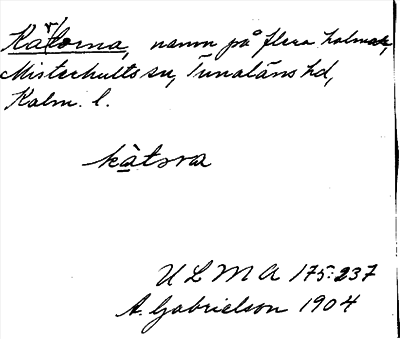 Kårtorna, namn på flera holmar,
Misterhults sn, Tunaläns hd,
Kalm. l.
kàtsra
ULMA 175:237
A. Gabrielson 1904